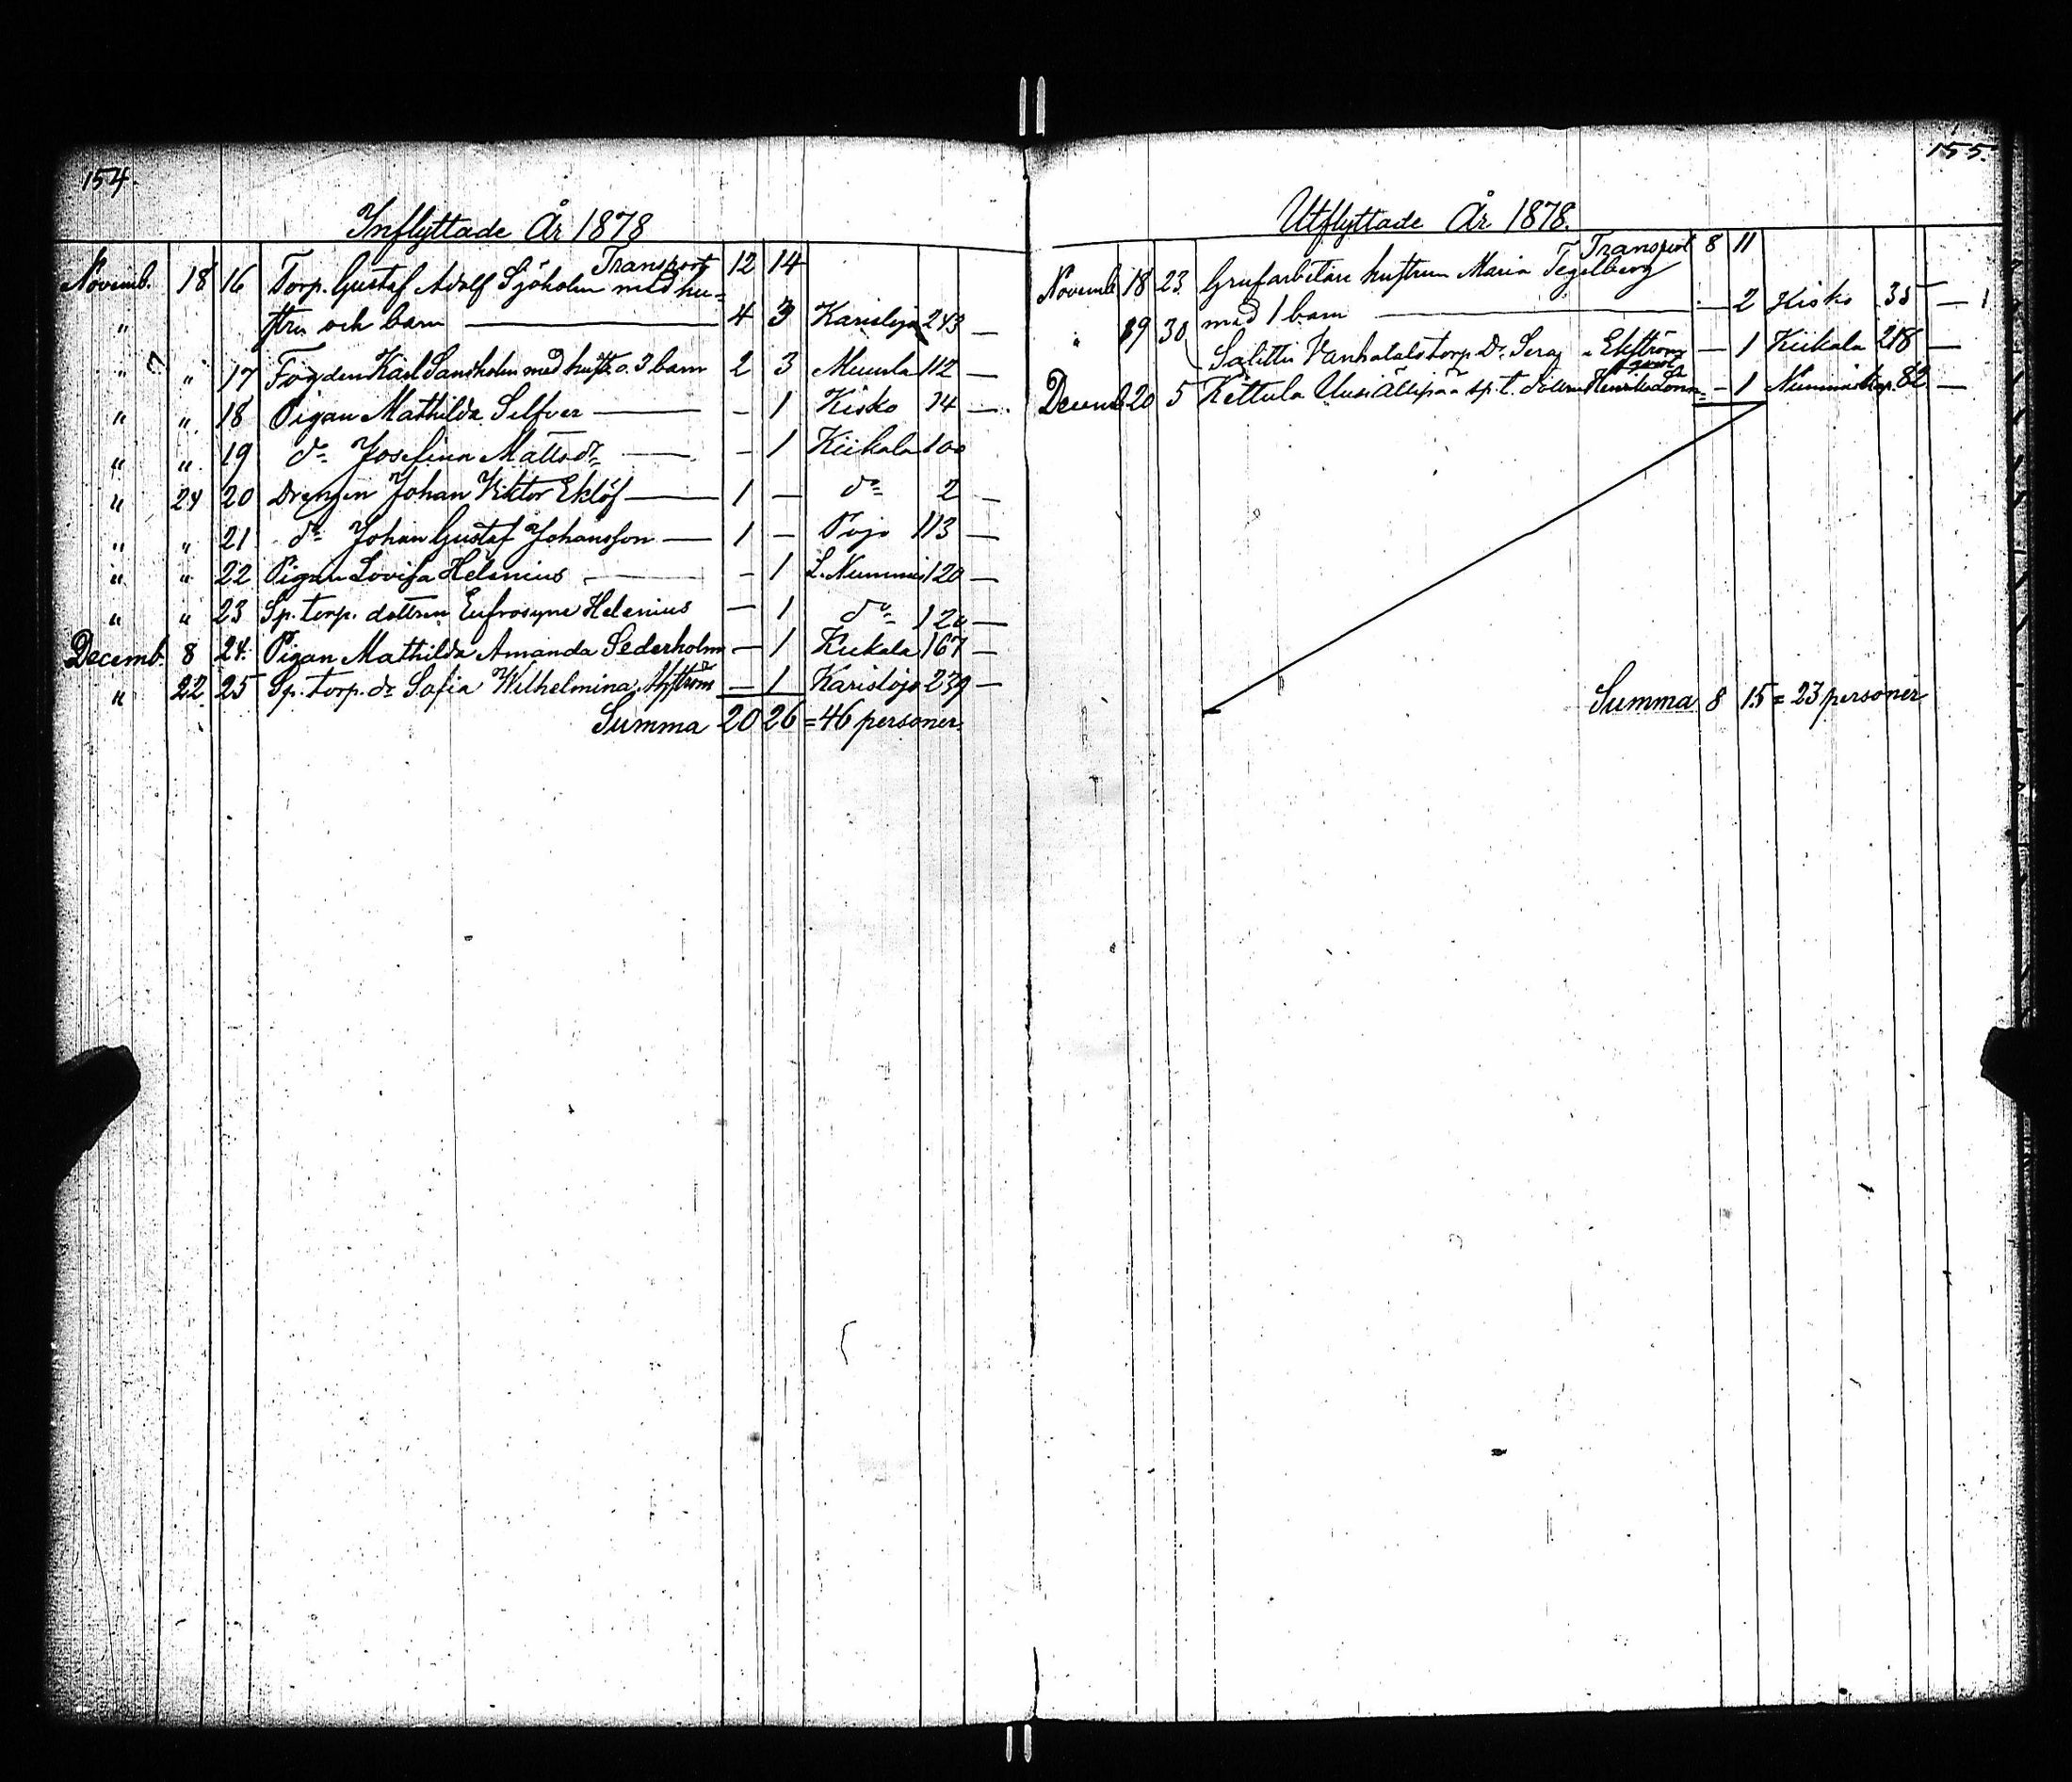 154.
Inflyttade År 1878
Transport 12 14
Novemb. 18 16 Torp. Gustaf Adolf Sjöholm med hu=
" stru och barn — 4 3 Karislojo 243 —
" " 17 Fogden Karl Sandholm med hustr. o. 3 barn 2 3 Muurla 112 —
" " 18 Pigan Mathilda Selfver — - 1 Kisko 34 —
" " 19 do Josefina Mattsdr — - 1 Kiikala 100
" 24 20 Drengen Johan Viktor Eklöf — 1 — do 2 —
" " 21 do Johan Gustaf Johansson — 1 - Pojo 113 —
" " 22 Pigan Lovisa Helenius — - 1 L. Nummis 120 —
" " 23 Sp. torp. dottren Eufrosyne Helenius — 1 do 120 —
Decemb. 8 24. Pigan Mathilda Amanda Sederholm — 1 Kiikala 167 —
" 22. 25 Sp. torp. dr Sofia Wilhelmina — 1 Karislojo 239 —
Summa 20 26 = 46 personer.
155.
Utflyttade År 1878.
Transport 8 11
Novemb 18 23. Grufarbetare hustrun Maria Tegelberg
med 1 barn — - 2 Kisko 35 — 1
" 19 30 Salittu Vanhatalo torp. Dr. Ekström — 1 Kiikala 218 —
Decemb 20 5 Kettula Uusi Ällipää sp. t. dottren - 1 Nummis kap. 82 —
Summa 8 15 = 23 personer